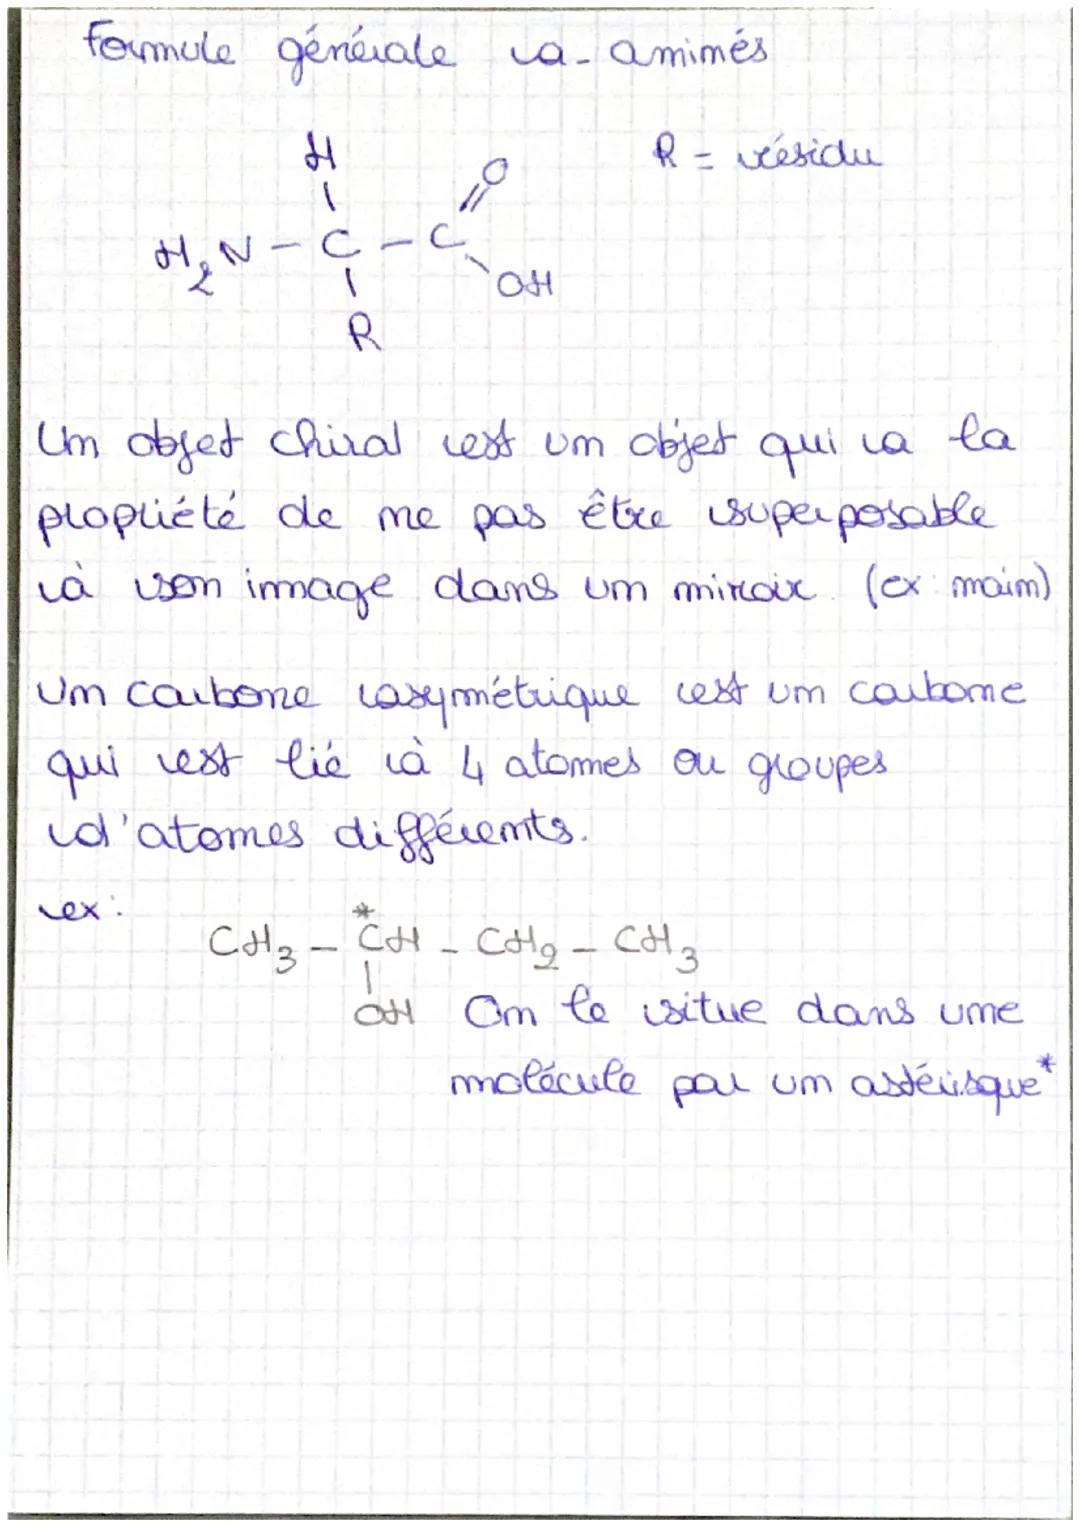 Formule générale a-aminés
R = résidu
H
O
H₂N - C - C
OH
R
Un objet chiral est un objet qui a la
propriété de ne pas être superposable
à son image dans un miroir. (ex: main)
Un carbone asymétrique est un carbone
qui est lié à 4 atomes ou groupes
d'atomes différents.
ex:
*
CH₃ - CH - CH₂ - CH₃
OH On le situe dans une
molécule par un astérisque*